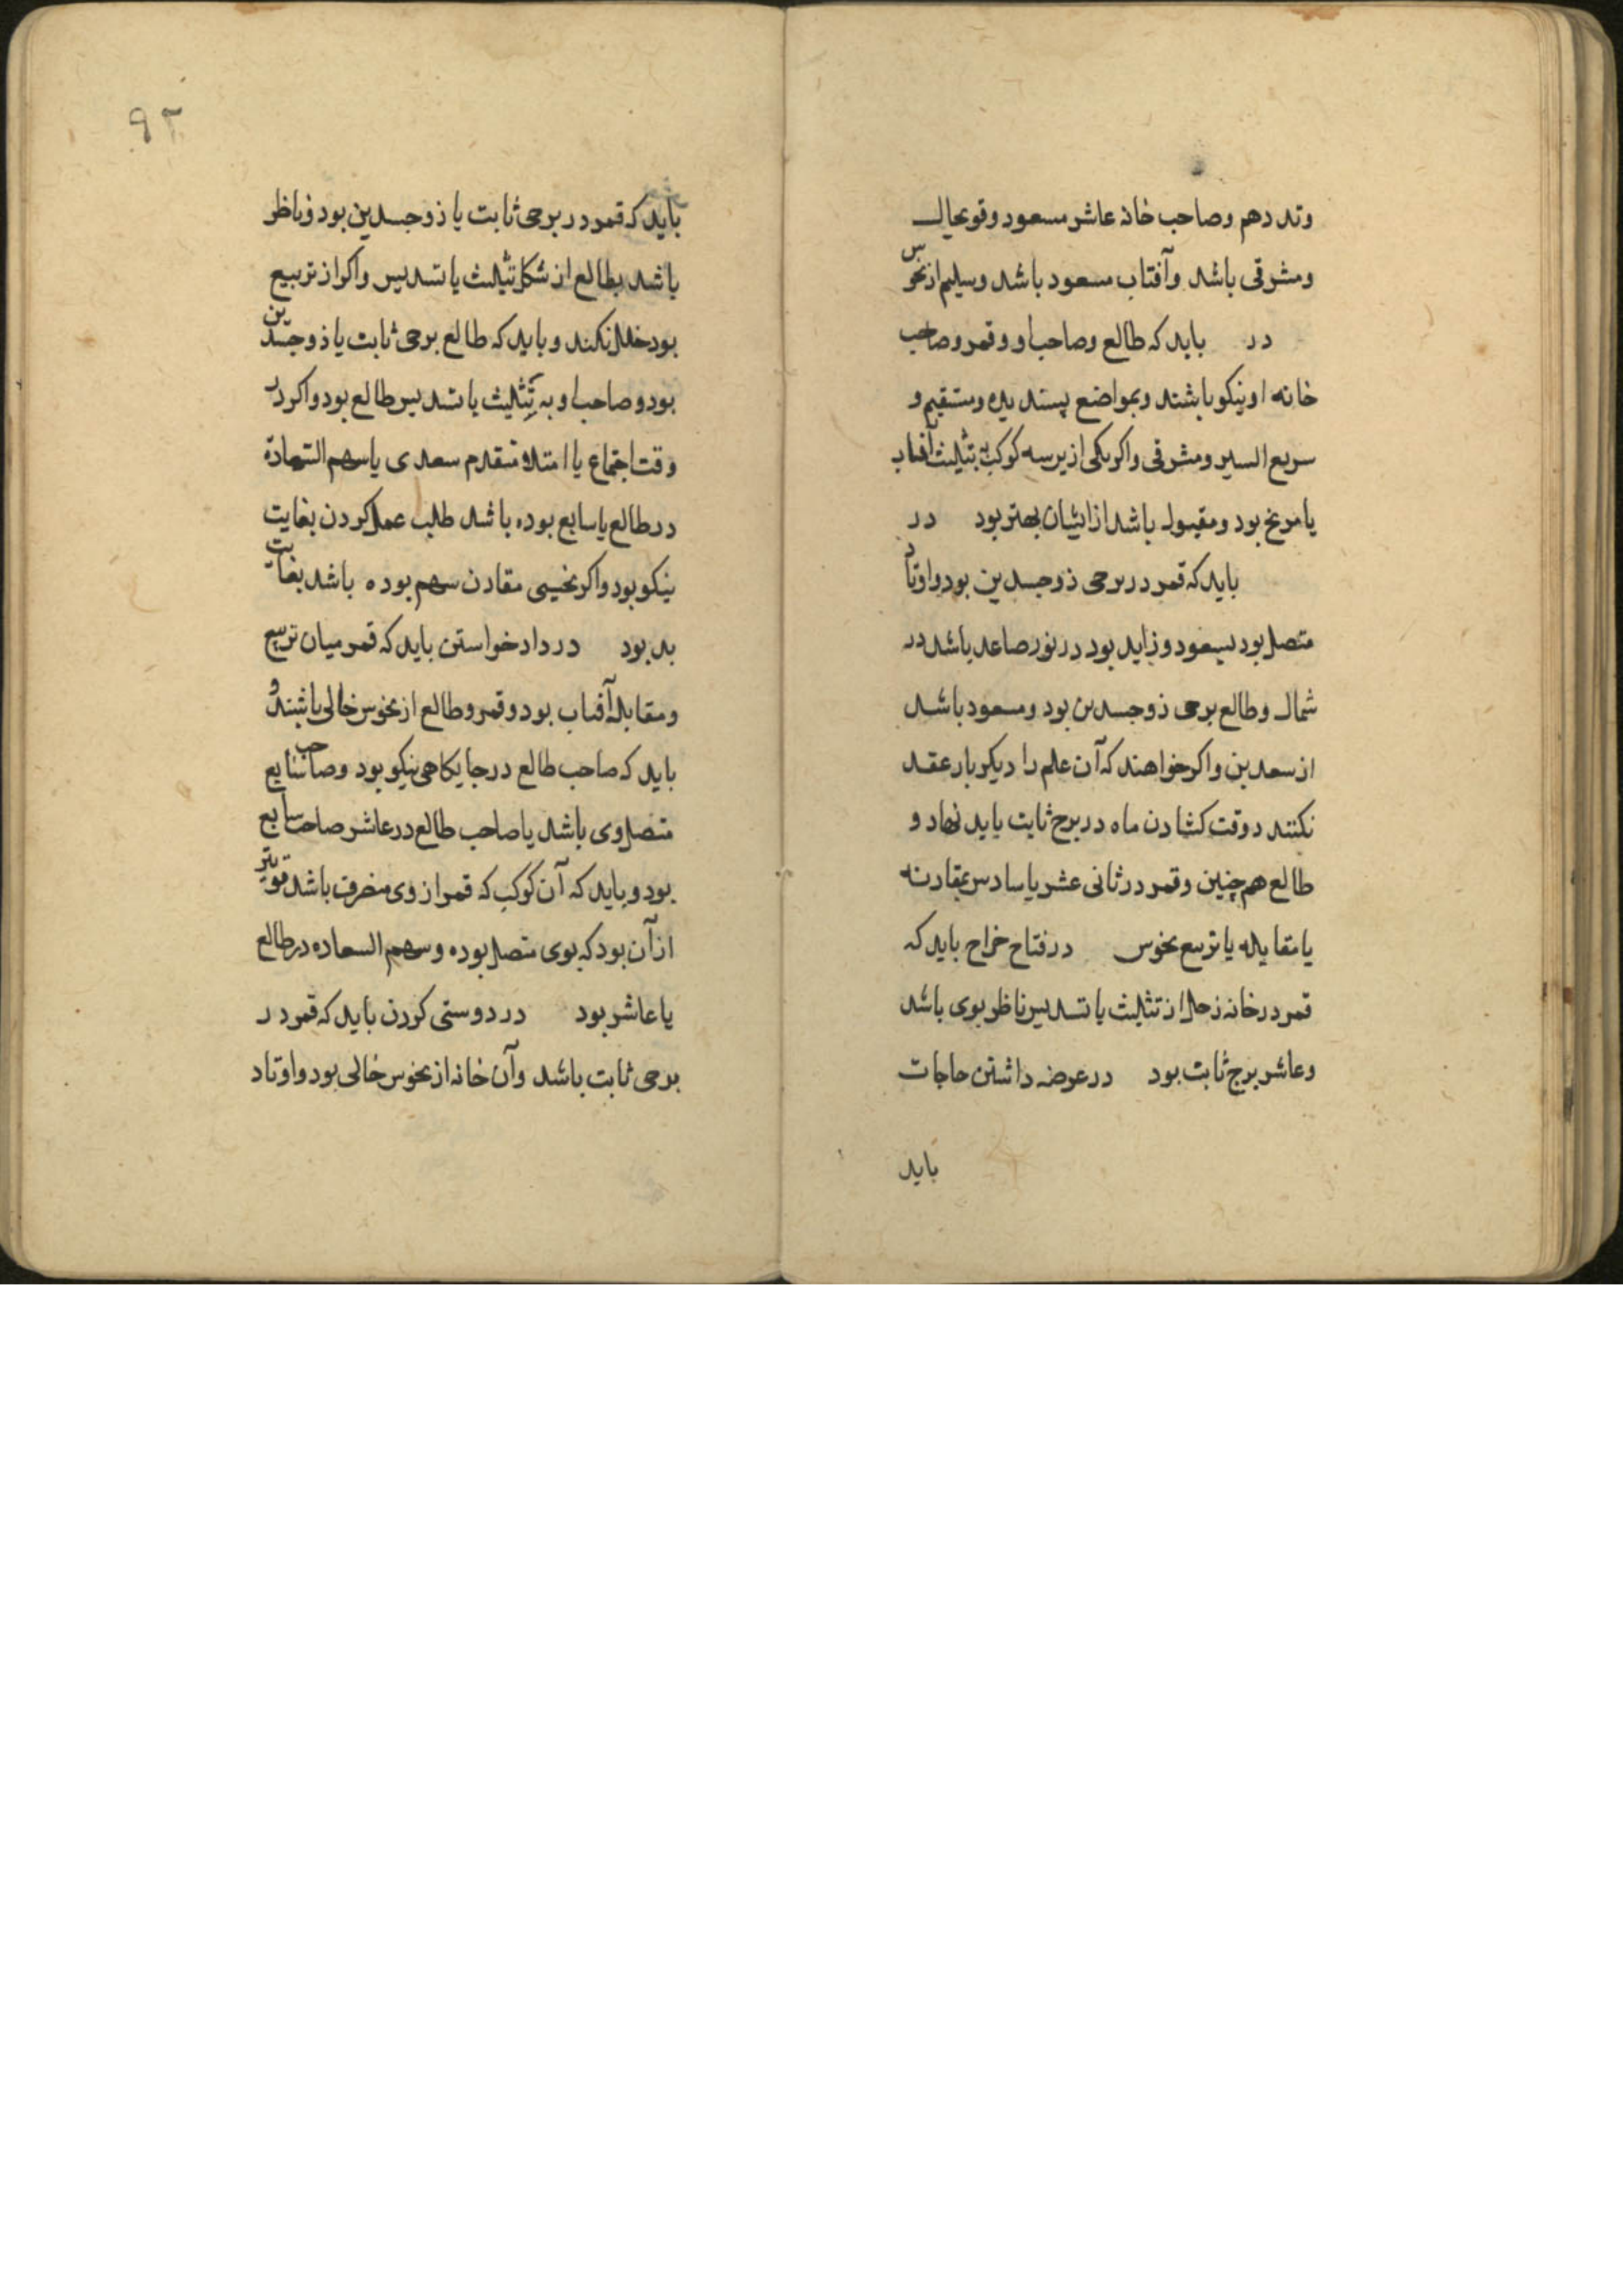 وتد دهم و صاحب خانه عاشر مسعود و قوی حال
و مشرقی باشد و آفتاب مسعود باشد و سلیم از نحوس
در باید که طالع و صاحب او و قمر و صاحب
خانه او نیکو باشند و بمواضع پسندیده و مستقیم و
سریع السیر و مشرقی و اکر یکی ازیر سه کوکب بتثلیث آفتاب
یا مریخ بود و مقبول باشد از ایشان بهتر بود در
باید که قمر در برجی ذوجسدین بود و اوتاد
متصل بود بسعود و زاید بود در نور صاعد باشد در
شمال و طالع برجی ذوجسدین بود و مسعود باشد
از سعدین و اکر خواهند که آن علم را دیکر بار عقد
نکنند د وقت کشادن ماه در برج ثابت باید نهاد و
طالع هم چنین و قمر در ثانی عشر یا سادس بمقارنه
یا مقابله یا تربیع نحوس در فتاح خراج باید که
قمر در خانه زحل از تثلیث یا تسدیس ناظر بوی باشد
و عاشر برج ثابت بود در عرضه داشتن حاجات
باید
۹۲
باید که قمر در برجی ثابت یا ذوجسدین بود و ناظر
باشد بطالع از شکل تثلیث یا تسدیس و اکر از تربیع
بود خلل نکند و باید که طالع برجی ثابت یا ذوجسدین
بود و صاحب او به تثلیث یا تسدیس طالع بود و اکر در
وقت اجتماع یا امتلاء متقدم سعدی یا سهم السّعادة
در طالع یا سابع بوده باشد طلب عمل کردن بغایت
نیکو بود و اکر نحسی مقارن سهم بوده باشد بغایت
بد بود در داد خواستن باید که قمر میان تربیع
و مقابله آفتاب بود و قمر و طالع از نحوس خالی باشند و
باید که صاحب طالع در جایکاهی نیکو بود و صاحب سابع
متصل وی باشد یا صاحب طالع در عاشر صاحب سابع
بود و باید که آن کوکب که قمر از وی منصرف باشد قویتر
از آن بود که بوی متصل بوده و سهم السعاده در طالع
یا عاشر بود در دوستی کردن باید که قمر در
برجی ثابت باشد و آن خانه از نحوس خالی بود و اوتاد